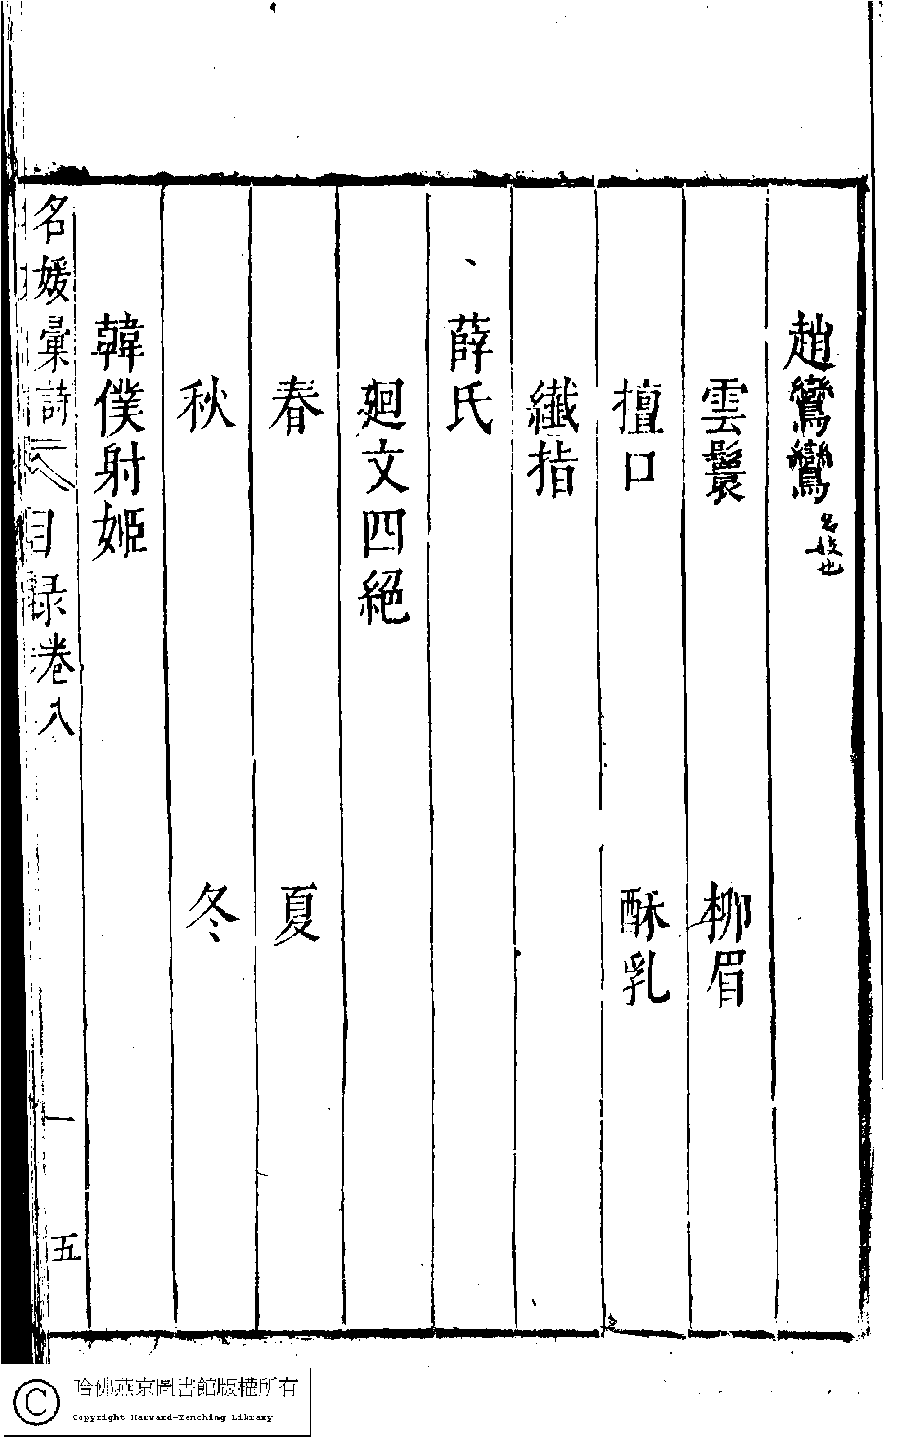 趙鸞鸞名妓也
雲鬟　柳眉
擅口　酥乳
纖指
薛氏
廻文四絕
春　夏
秋　冬
韓僕射姬
名媛彙詩　目錄卷八　一　五
哈佛燕京圖書館版權所有
Copyright Harvard-Yenching Library